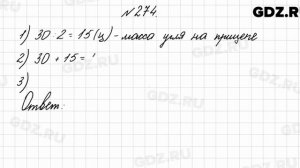 GDZ.R
№274.
1) 30 : 2 = 15 (ц) - масса угля на прицепе
2) 30 + 15 =
3)
Ответ:
GDZ.RU